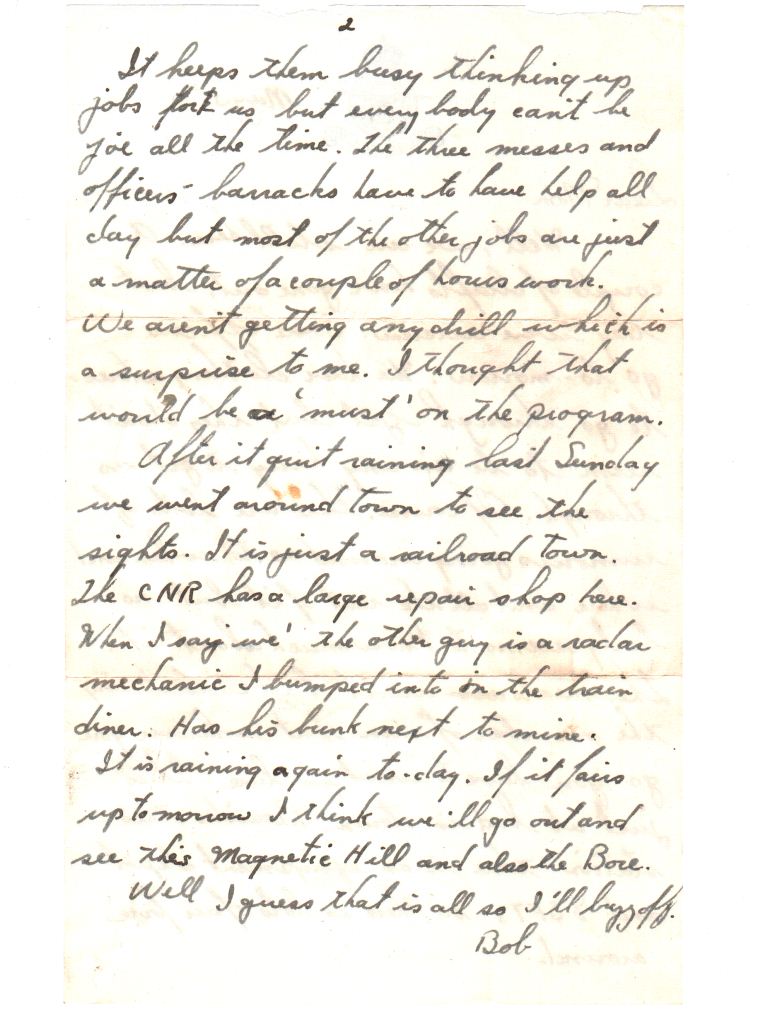 2
It keeps them busy thinking up
jobs for us but everybody can't be
joe all the time. The three messes and
officers' barracks have to have help all
day but most of the other jobs are just
a matter of a couple of hours work.
We aren't getting any drill which is
a surprise to me. I thought that
would be a 'must' on the program.
After it quit raining last Sunday
we went around town to see the
sights. It is just a railroad town.
The CNR has a large repair shop here.
When I say 'we' the other guy is a radar
mechanic I bumped into in the train
diner. Has his bunk next to mine.
It is raining again to-day. If it fairs
up tomorrow I think we'll go out and
see this Magnetic Hill and also the Bore.
Well I guess that is all so I'll buzz off.
Bob